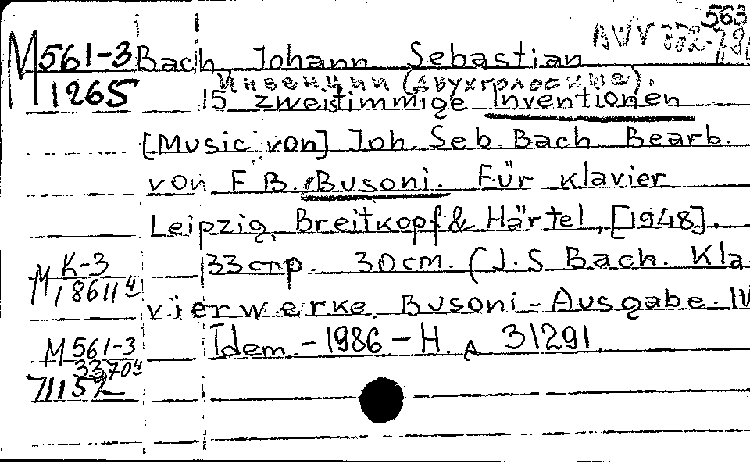 563
М561-3 Bach, Johann Sebastian
1265 Инвенции (двухголосные).
15 zweistimmige Inventionen
[Music von] Joh. Seb. Bach. Bearb.
von F. B. Busoni. Für klavier
Leipzig, Breitkopf & Härtel, [1948].
М К-3 33 стр. 30 см. (J. S. Bach. Kla-
vierwerke. Busoni-Ausgabe.
М561-3 Idem. - 1986 - Н. 31291
33704
71152